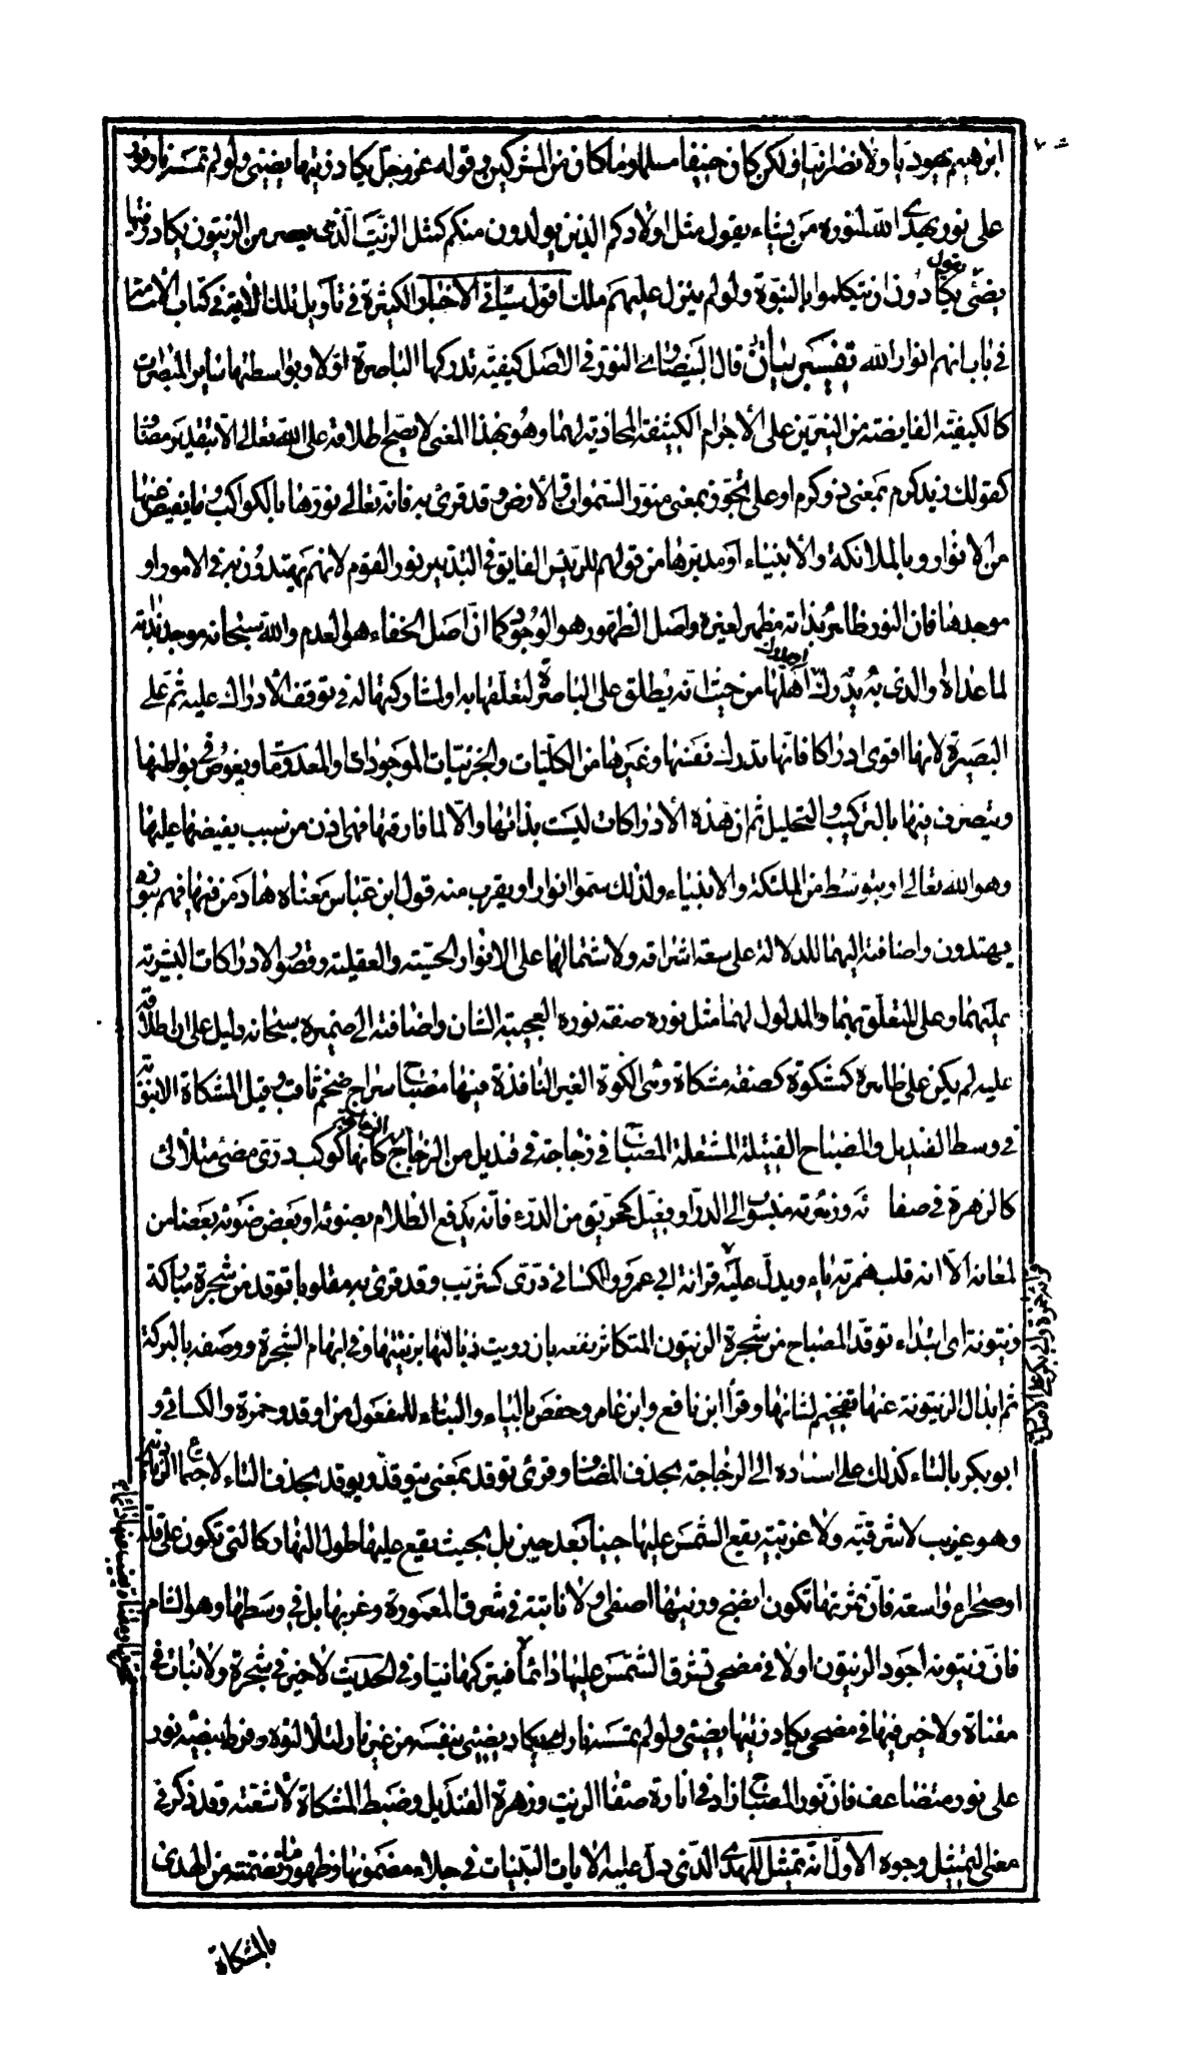 ابرهيم يهوديا ولا نصرانيا ولكن كان حنيفا مسلما وما كان من المشركين وقوله عز وجل يكاد زيتها يضيئ ولو لم تمسسه نار نور
على نور يهدي الله لنوره من يشاء يقول مثل اولادكم الذين يولدون منكم كمثل الزيت الذي يعصر من الزيتون يكاد زيتها
يضئ يقول يكادون ان يتكلموا بالنبوة ولو لم ينزل عليهم ملك اقول سيأتي الاخبار الكثيرة في تأويل تلك الاية في كتاب الامامة
في باب انهم انوار الله تفسير بيان قال البيضاوي النور في الاصل كيفية تدركها الباصرة اولا وبواسطتها سائر المبصرات
كالكيفية الفايضة من النيرين على الأجرام الكثيفة المحاذية لهما وهو بهذا المعنى لا يصح اطلاقه على الله تعالى الا بتقدير مضاف
كقولك زيد كرم بمعنى ذو كرم او على تجوز بمعنى منور السموات والأرض وقد قرئ به فانه تعالى نورها بالكواكب وما يفيض عنها
من الانوار وبالملائكة والأنبياء او مدبرها من قولهم للرئيس الفايق في التدبير نور القوم لانهم يهتدون به في الامور او
موجدها فان النور ظاهر بذاته مظهر لغيره واصل الظهور هو الوجود كما ان اصل الخفاء هو العدم والله سبحانه موجد بذاته
لما عداه والذي به يدرك ادراك اهلها من حيث انه يطلق على الباصرة لتعلقها به او لمشاركتها له في توقف الأدراك عليه ثم على
البصيرة لانها اقوى ادراكا فانها تدرك نفسها وغيرها من الكليات والجزئيات الموجودات والمعدومات ويغوص في بواطنها
ويتصرف فيها بالتركيب والتحليل ثم ان هذه الأدراكات ليست بذاتها والا لما فارقتها فهي اذن من سبب يفيضها عليها
وهو الله تعالى او بتوسط من الملئكة والانبياء ولذلك سموا انوارا ويقرب منه قول ابن عباس معناه هادي من فيها فهم بنوره
يهتدون واضافته اليهما للدلالة على سعة اشراقه ولاشتمالها على الانوار الحسية والعقلية وقصور الادراكات البشرية
عليهما وعلى المتعلق بهما والمدلول لهما مثل نوره صفة نوره العجيبة الشان واضافته الى ضميره سبحانه دليل على ان اطلاقه
عليه لم يكن على ظاهره كمشكوة كصفة مشكاة وهي الكوة الغير النافذة فيها مصباح سراج ضخم ثاقب وقيل المشكاة الانبوبة
في وسط القنديل والمصباح الفتيلة المشتعلة المصباح في زجاجة في قنديل من الزجاج الزجاجة كأنها كوكب دري مضئ متلألئ
كالزهرة في صفائه وزهرته منسوب الى الدر او فعيل كمريق من الدرء فانه يدفع الظلام بضوئه او بعض ضوئه بعضا من
لمعانه الا انه قلب همزته ياء ويدل عليه قرائة ابي عمرو والكسائي درئ كشريب وقد قرئ به مقلوبا توقد من شجرة مباركة
زيتونة اى ابتداء توقد المصباح من شجرة الزيتون المتكاثر نفعه بان رويت ذبالتها بزيتها وفي ابهام الشجرة ووصفه بالبركة
ثم ابدال الزيتونة عنها تفخيم لشانها وقرأ ابن نافع وابن عامر وحفص بالياء والبناء للمفعول من اوقد وحمزة والكسائي و
ابو بكر بالتاء كذلك على اسناده الى الزجاجة بحذف المضاف وقرئ توقد بمعنى تتوقد ويوقد بحذف التاء لاجتماع الزيادتين
وهو غريب لا شرقية ولا غربية يقع الشمس عليها حينا بعد حين بل بحيث يقع عليها طول النهار كالتي تكون على قلة
او صحراء واسعة فان ثمرتها تكون انضج وزيتها اصفى او لا نابتة في شرق المعمورة وغربها بل في وسطها وهو الشام
فان زيتونه اجود الزيتون او لا في مضحى تشرق الشمس عليها دائما فيتركها نيا وفي الحديث لا خير في شجرة ولا نبات في
مقناة ولا خير فيها في مضحى يكاد زيتها يضيئ ولو لم تمسسه نار اى يكاد يضيئ بنفسه من غير نار لتلألئه وفرط وبيصه نور
على نور متضاعف فان نور المصباح زاد في انارة صفاء الزيت وزهرة القنديل وضبط المشكاة لأشعته وقد ذكر في
معنى التمثيل وجوه الاول انه تمثيل للهدى الذي دل عليه الايات البينات في جلاء مضمونها وظهور ما تضمنته من الهدى
بالمشكاة